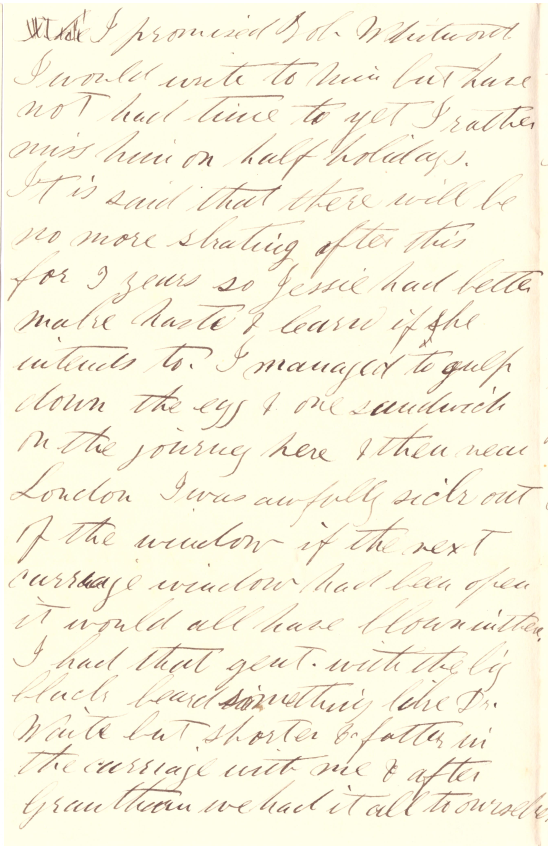 I promised Bob Whitword
I would write to him but have
not had time to yet I rather
miss him on half holidays.
It is said that there will be
no more skating after this
for 9 years so Jessie had better
make haste & learn if she
intends to. I managed to gulp
down the egg & one sandwich
on the journey here & then near
London I was awfully sick out
of the window if the next
carriage window had been open
it would all have blown in then.
I had that gent. with the big
black beard something like Dr.
Waite but shorter & fatter in
the carriage with me & after
Grantham we had it all to ourselves